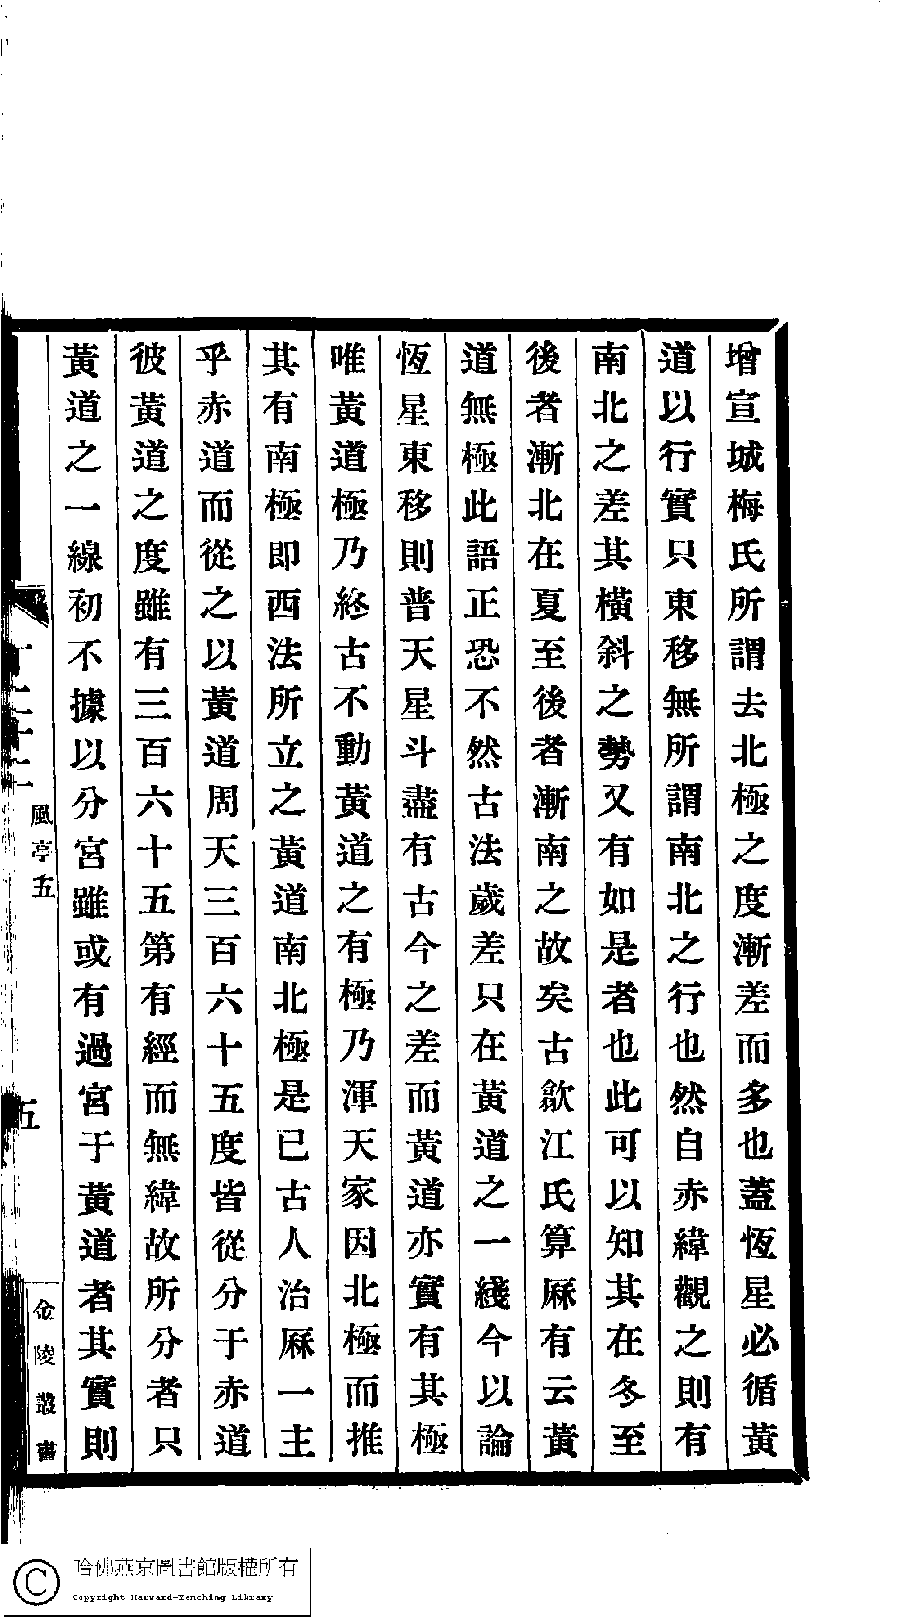 增宣城梅氏所謂去北極之度漸差而多也蓋恆星必循黃
道以行實只東移無所謂南北之行也然自赤緯觀之則有
南北之差其橫斜之勢又有如是者也此可以知其在冬至
後者漸北在夏至後者漸南之故矣古歙江氏算厤有云黃
道無極此語正恐不然古法歲差只在黃道之一綫今以論
恆星東移則普天星斗盡有古今之差而黃道亦實有其極
唯黃道極乃終古不動黃道之有極乃渾天家因北極而推
其有南極即西法所立之黃道南北極是已古人治厤一主
乎赤道而從之以黃道周天三百六十五度皆從分于赤道
彼黃道之度雖有三百六十五第有經而無緯故所分者只
黃道之一線初不據以分宮雖或有過宮于黃道者其實則
風亭五
五
金陵叢書
哈佛燕京圖書館版權所有
Copyright Harvard-Yenching Library